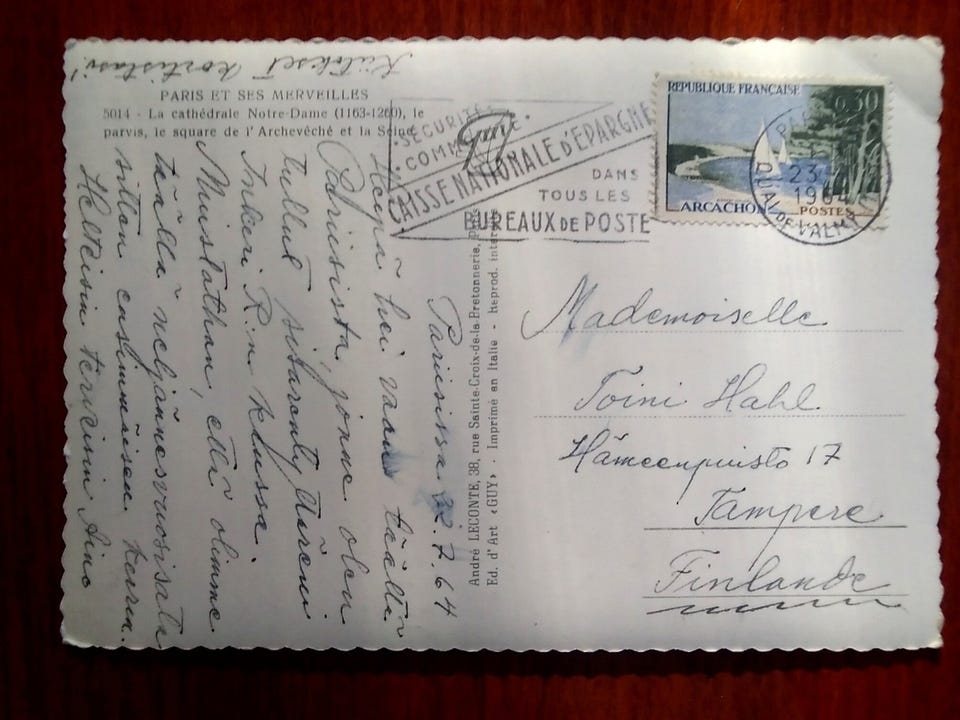 Kiitokset kortistasi!
PARIS ET SES MERVEILLES
5014 - La cathédrale Notre-Dame (1163-1260), le
parvis, le square de l'Archevêché et la Seine
SÉCURITÉ
COMMODITÉ
CAISSE NATIONALE D'ÉPARGNE
DANS
TOUS LES
BUREAUX DE POSTE
REPUBLIQUE FRANÇAISE
0,30
ARCACHON
POSTES
PARIS
23
1964
Pariisissa 22.7.64
Heipä hei vaan täältä
Pariisista, jonne olen
tullut sisarentyttäreni
Inkeri R:n kanssa.
Muistathan, että olimme
täällä neljännesvuosisata
sitten ensimmäisen kerran.
Helteisin terveisin Aino
André LECONTE, 38, rue Sainte-Croix-de-la-Bretonnerie, Paris
Ed. d'Art «GUY» - Imprimé en Italie - Reprod. inter.
Mademoiselle
Toini Hahl
Hämeenpuisto 17
Tampere
Finlande